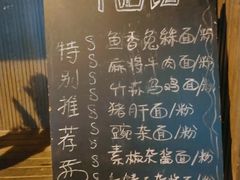 特别推荐
S 鱼香兔丝面/粉
S 麻将牛肉面/粉
S 竹荪乌鸡面/粉
S 猪肝面/粉
S 豌杂面/粉
S 素椒杂酱面/粉